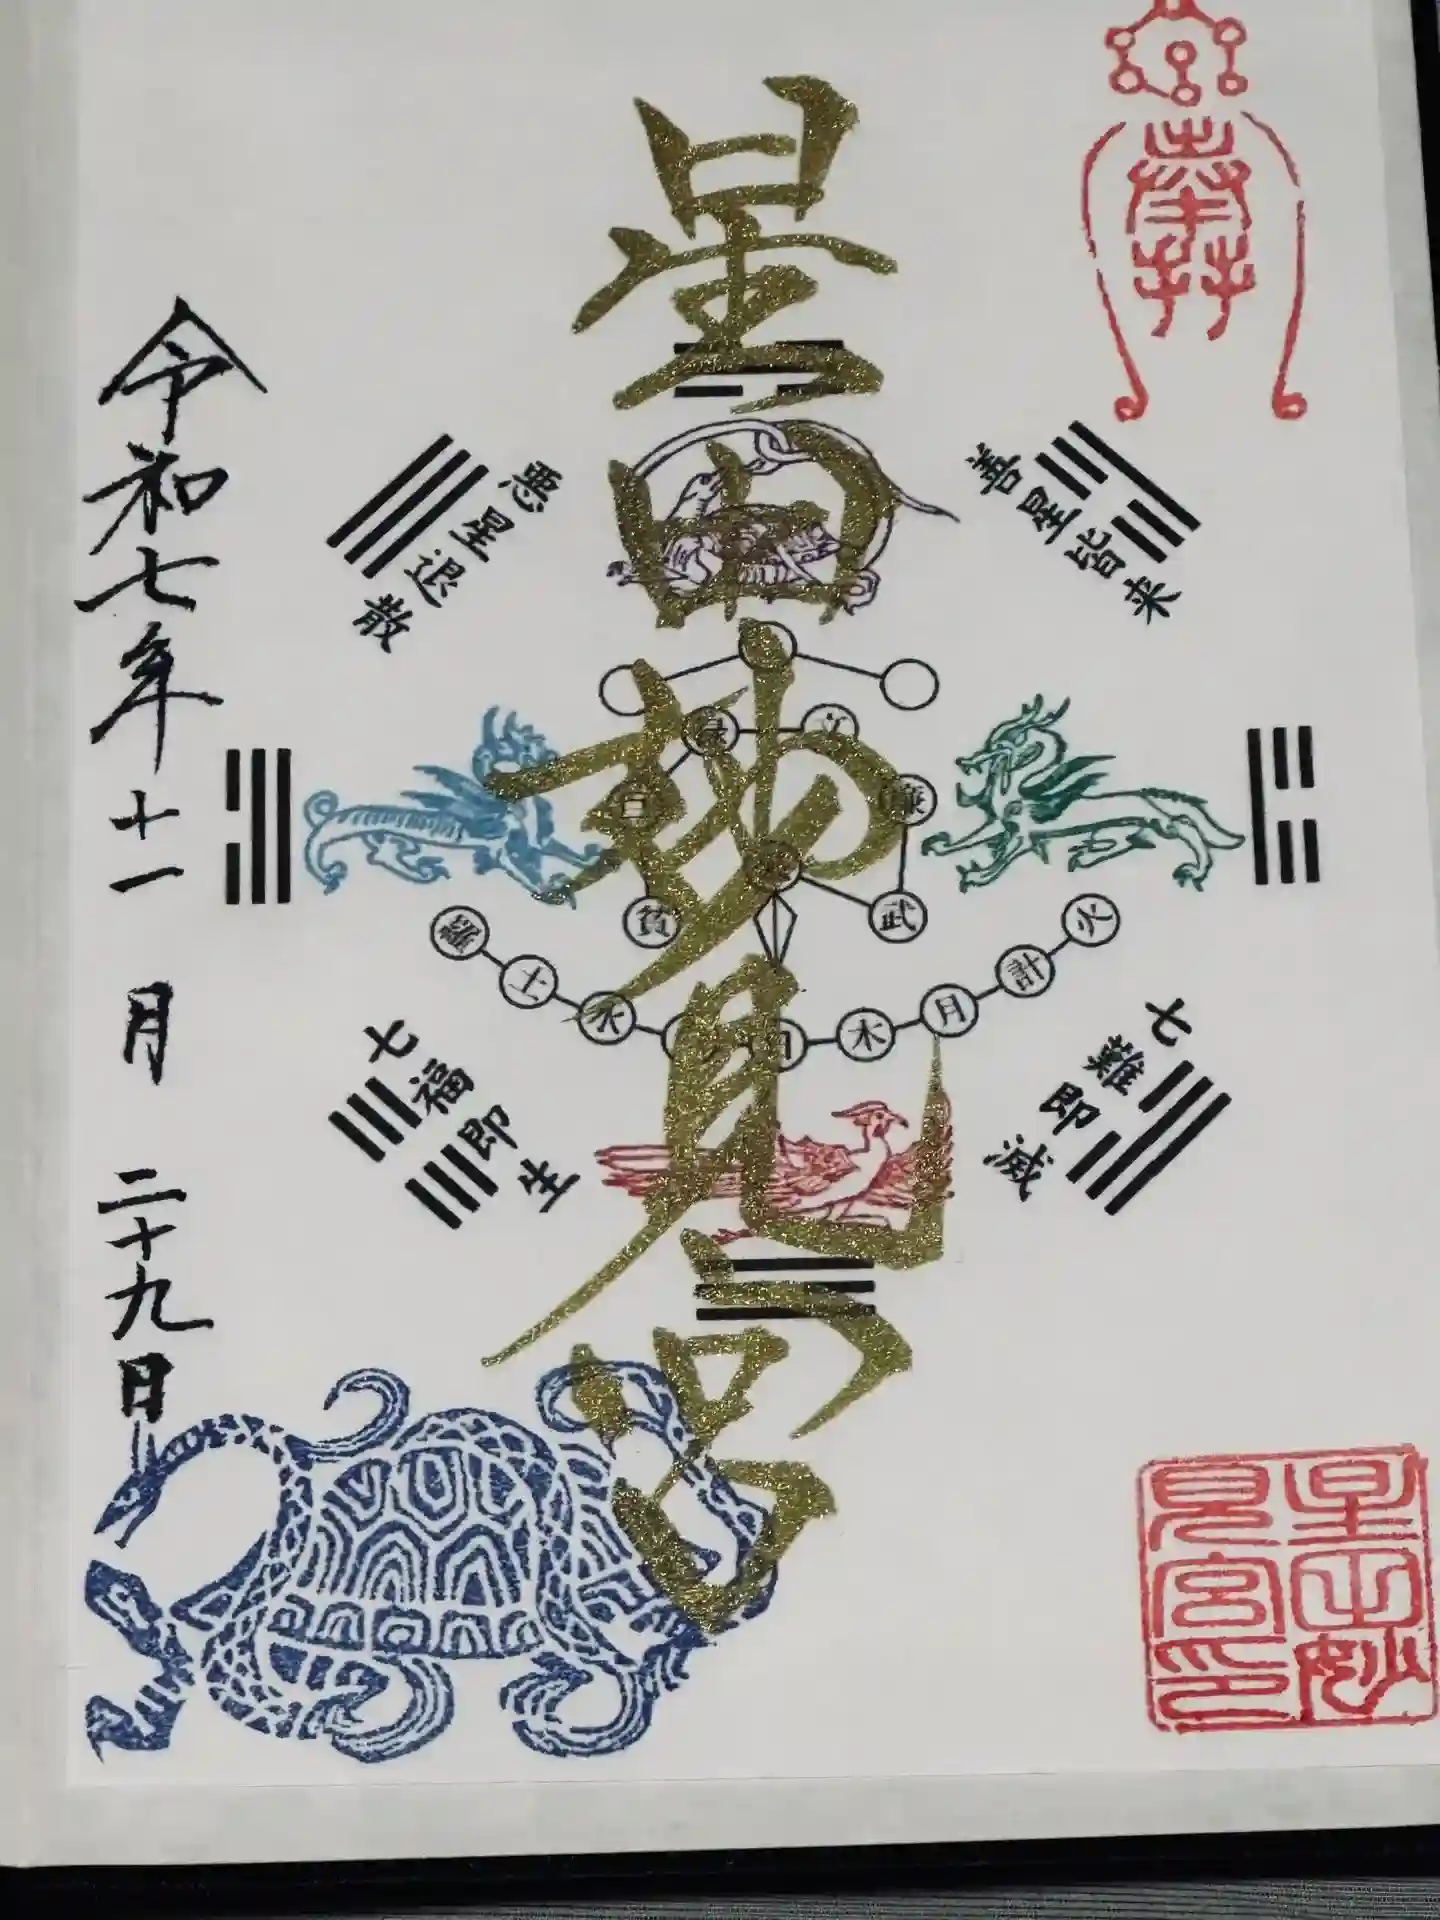 星田妙見宮
令和七年十一月二十九日
悪星退散
善星皆来
七福即生
七難即滅
禄
文
巨
廉
貧
武
羅
土
水
木
月
計
火
星田妙
見宮印